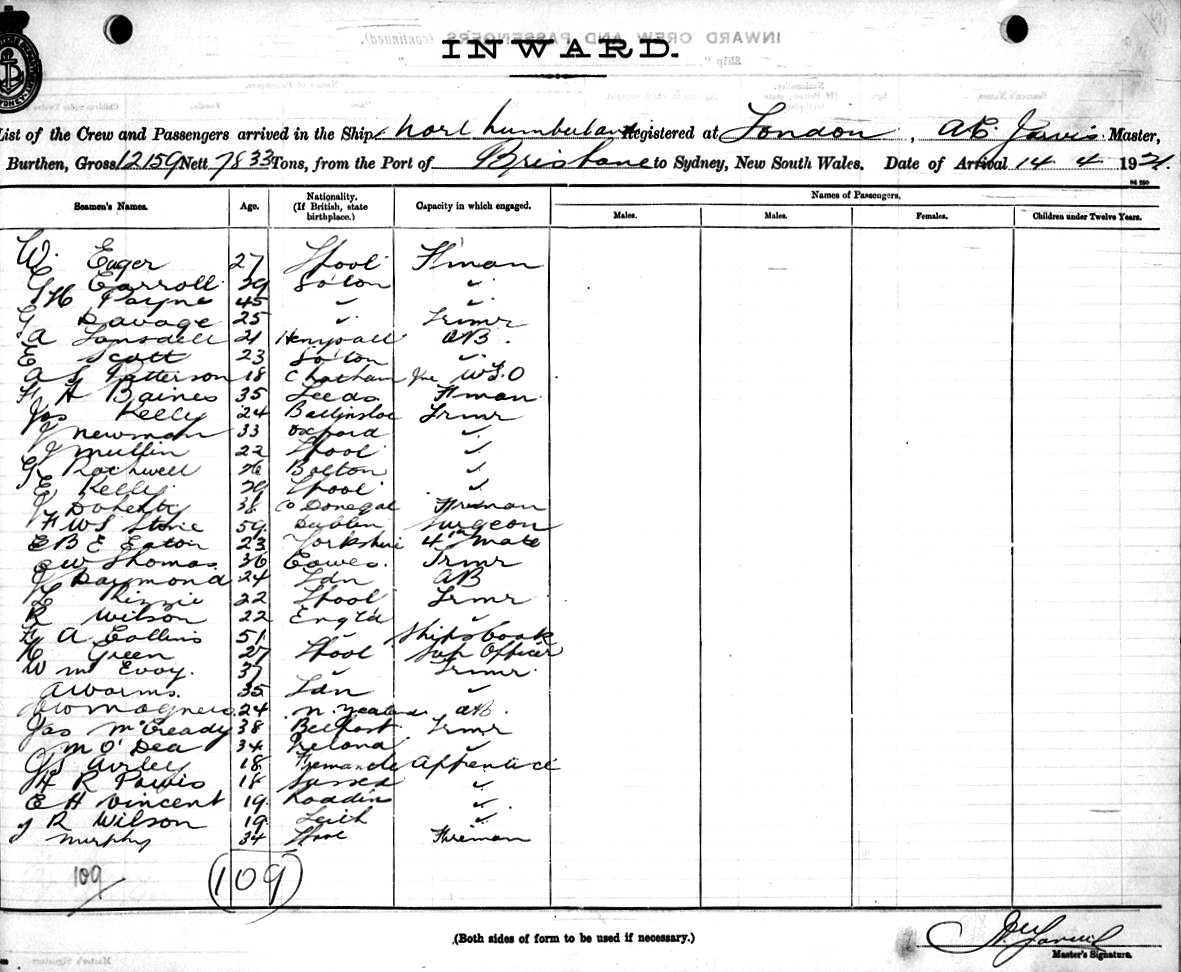 INWARD.
List of the Crew and Passengers arrived in the Ship Northumberland Registered at London, A.E. Jarvis Master,
Burthen, Gross 12159 Nett 7833 Tons, from the Port of Brisbane to Sydney, New South Wales. Date of Arrival 14 4 1921.
Seamen's Names. Age. Nationality. (If British, state birthplace.) Capacity in which engaged. Names of Passengers.
Males. Males. Females. Children under Twelve Years.
W. Eager 27 L'pool F'man
C Carroll 29 So'ton "
G H Payne 45 " "
G Savage 25 " Trimr
A Lonsdell 21 AB.
E Scott 23 So'ton "
A S Patterson 18 Chatham Jnr W.T.O
F H Baines 35 Leeds F'man
Jas Kelly 24 Ballinsloe Trmr
J Newman 33 Oxford "
J Mullin 22 L'pool "
G Rochwell 26 Bolton "
E Kelly 29 L'pool "
J Doherty 38 Co Donegal Fireman
F W S Stone 59 Dublin Surgeon
E B E Eaton 23 Yorkshire 4th Mate
E W Thomas 36 Cowes. Trmr
J Daymond 24 Ldn AB
22 L'pool Trmr
R Wilson 22 Engld "
F A Collins 51 " Ships Cook
H Green 27 L'pool Sup Officer
W McEvoy. 37 " Trmr
A Worms. 35 Ldn "
24 N. Zealand AB.
Jas McCready 38 Belfast Trmr
M O'Dea 34 Ireland "
Airley 18 Fremantle Apprentice
H R Powis 18 Sussex "
E H Vincent 19 "
J R Wilson 19 Leith "
J Murphy 34 L'pool Fireman
109 (109)
(Both sides of form to be used if necessary.)
Master's Signature.